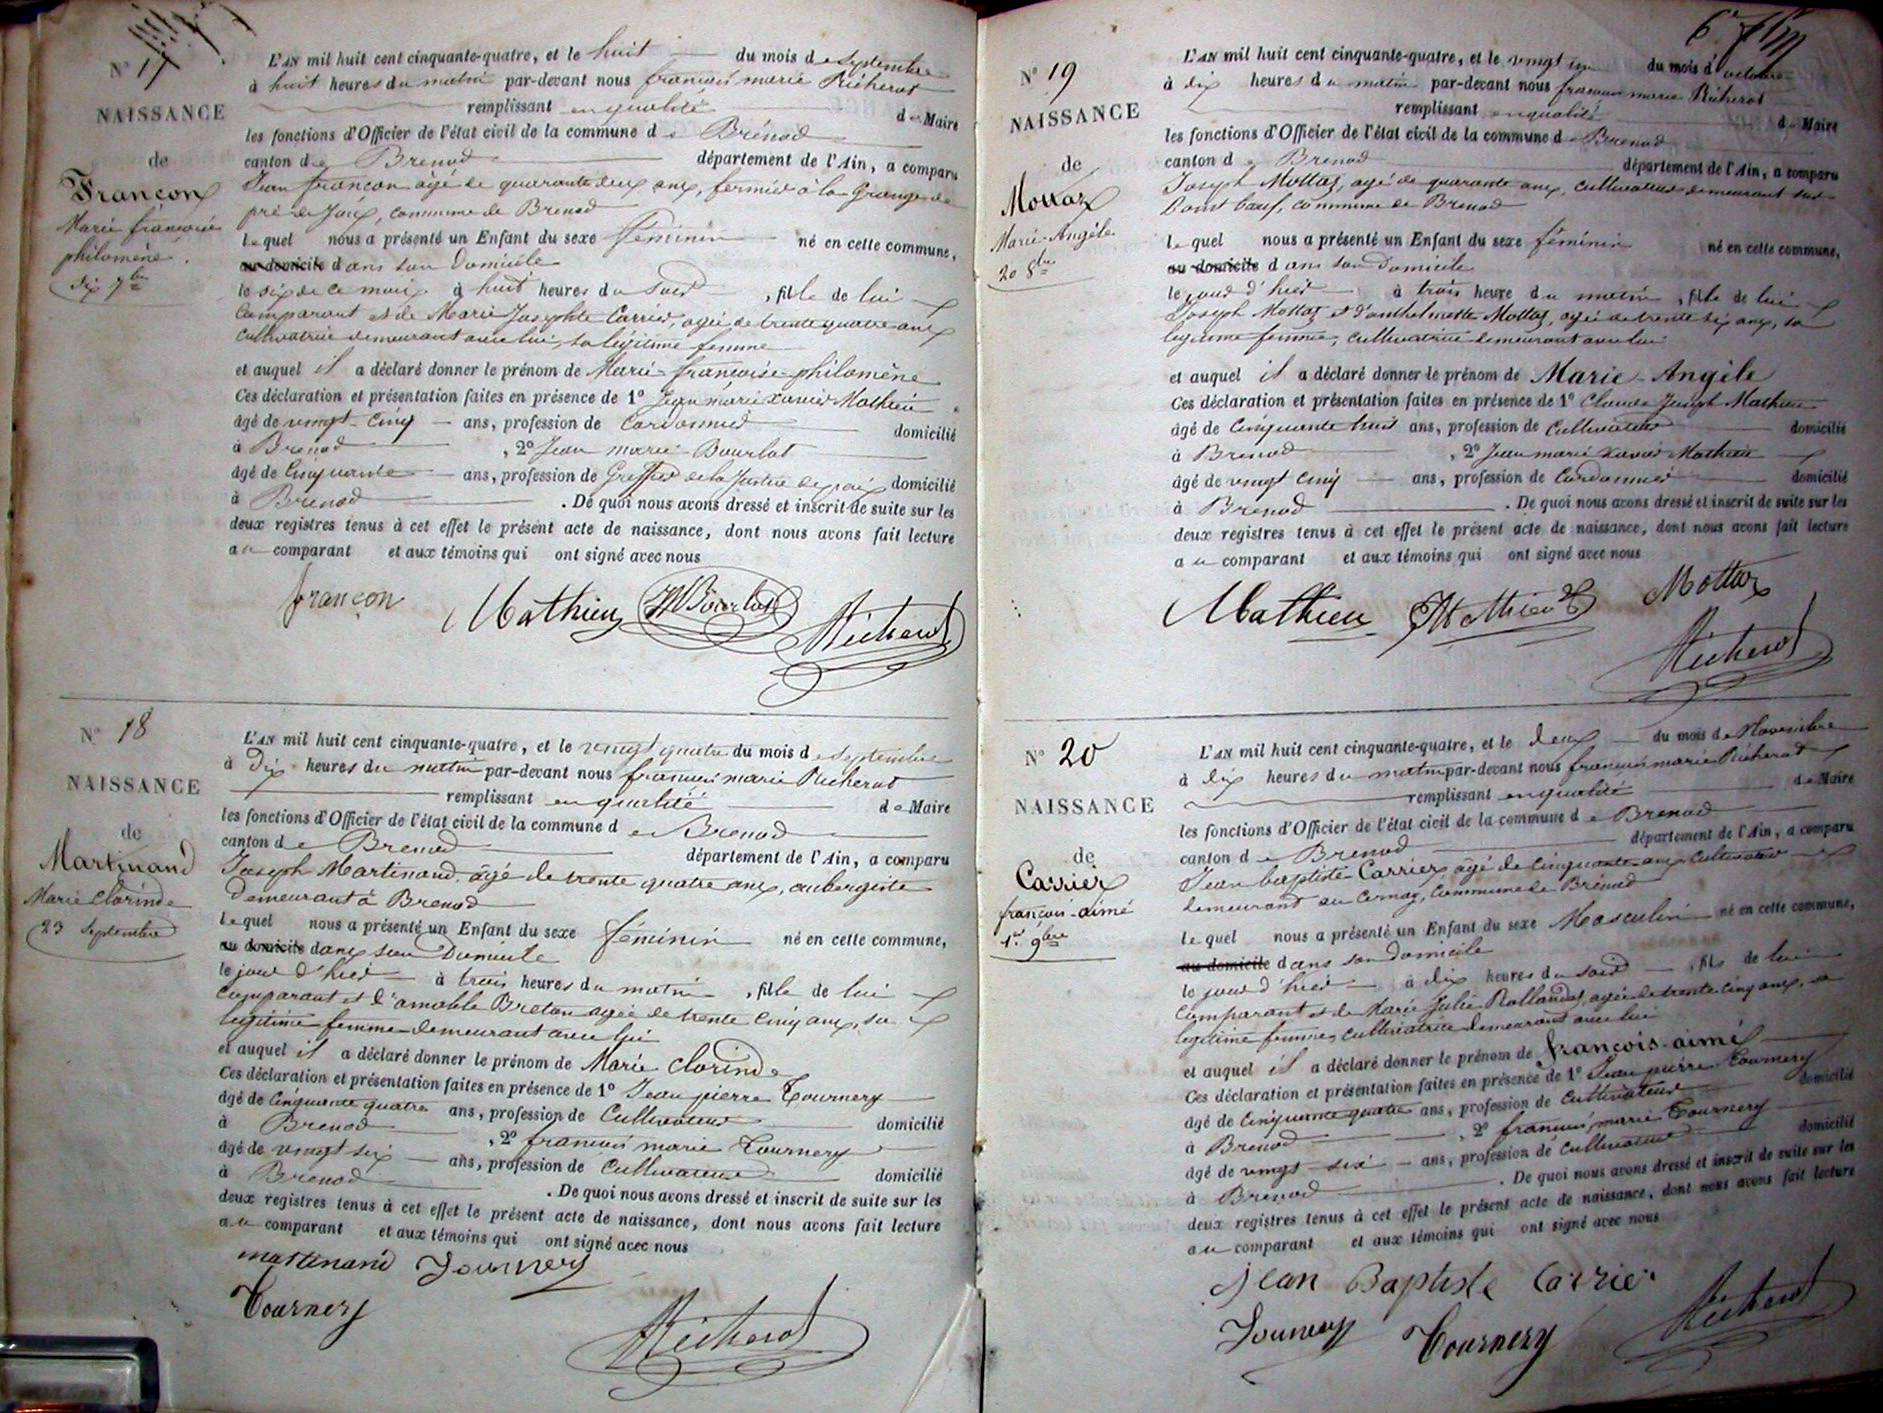 N° 17
NAISSANCE
de
Françon
Marie françoise
philomène.
dix 7bre
L'AN mil huit cent cinquante-quatre, et le huit du mois de septembre
à huit heures du matin par-devant nous françois marie Richerot
remplissant en qualité de Maire
les fonctions d'Officier de l'état civil de la commune de Brénod
canton de Brenod département de l'Ain, a comparu
Jean françon âgé de quarante deux ans, fermier à la Grange du
pré de Joux, commune de Brenod
Lequel nous a présenté un Enfant du sexe féminin né en cette commune,
au domicile dans son Domicile
le six de ce mois à huit heures du soir, fille de lui
Comparant et de Marie Josephte Carrier, agée de trente quatre ans
cultivatrice demeurant avec lui, sa légitime femme
et auquel il a déclaré donner le prénom de Marie-françoise-philomène
Ces déclaration et présentation faites en présence de 1° Jean marie xavier Mathieu
âgé de vingt-cinq ans, profession de Cordonnier domicilié
à Brenod, 2° Jean marie Bourlot
âgé de Cinquante ans, profession de Greffier de la Justice de paix domicilié
à Brenod. De quoi nous avons dressé et inscrit de suite sur les
deux registres tenus à cet effet le présent acte de naissance, dont nous avons fait lecture
au comparant et aux témoins qui ont signé avec nous
françon Mathieu JMBourlot Richerot
N° 18
NAISSANCE
de
Martinand
Marie Clorinde
23 Septembre
L'AN mil huit cent cinquante-quatre, et le vingt quatre du mois de septembre
à Dix heures du mattin par-devant nous françois marie Richerot
remplissant en qualité de Maire
les fonctions d'Officier de l'état civil de la commune de Brenod
canton de Brenod département de l'Ain, a comparu
Joseph Martinand âgé de trente quatre ans, aubergiste
Demeurant à Brenod
Lequel nous a présenté un Enfant du sexe féminin né en cette commune,
au domicile dans son Domicile
le jour d'hier à trois heures du matin, fille de lui
comparant et d'amable Breton agée de trente Cinq ans, sa
légitime femme demeurant avec lui
et auquel il a déclaré donner le prénom de Marie Clorinde
Ces déclaration et présentation faites en présence de 1° Jean pierre Tournery
âgé de Cinquante quatre ans, profession de Cultivateur domicilié
à Brenod, 2° françois marie Tournery
âgé de vingt six ans, profession de Cultivateur domicilié
à Brenod. De quoi nous avons dressé et inscrit de suite sur les
deux registres tenus à cet effet le présent acte de naissance, dont nous avons fait lecture
au comparant et aux témoins qui ont signé avec nous
martinand Tournery
Tournery Richerot
N° 19
NAISSANCE
de
Mottaz
Marie-Angèle
20 8bre
L'AN mil huit cent cinquante-quatre, et le vingt un du mois d'octobre
à dix heures du matin par-devant nous françois marie Richerot
remplissant en qualité de Maire
les fonctions d'Officier de l'état civil de la commune de Brenod
canton de Brenod département de l'Ain, a comparu
Joseph Mottaz, agé de quarante ans, cultivateur demeurant sur
commune de Brenod
Lequel nous a présenté un Enfant du sexe féminin né en cette commune,
au domicile dans son Domicile
le jour d'hier à trois heure du matin, fille de lui
Joseph Mottaz et d'anthelmette Mottaz, agée de trente six ans, sa
legitime femme, cultivatrice demeurant avec lui
et auquel il a déclaré donner le prénom de Marie-Angèle
Ces déclaration et présentation faites en présence de 1° Claude Joseph Mathieu
âgé de Cinquante huit ans, profession de Cultivateur domicilié
à Brenod, 2° Jean marie xavier Mathieu
âgé de vingt cinq ans, profession de Cordonnier domicilié
à Brenod. De quoi nous avons dressé et inscrit de suite sur les
deux registres tenus à cet effet le présent acte de naissance, dont nous avons fait lecture
au comparant et aux témoins qui ont signé avec nous
Mathieu Mottaz
Richerot
N° 20
NAISSANCE
de
Carrier
françois-aimé
1er 9bre
L'AN mil huit cent cinquante-quatre, et le deux du mois de Novembre
à dix heures du matin par-devant nous françois marie Richerot
remplissant en qualité de Maire
les fonctions d'Officier de l'état civil de la commune de Brenod
canton de Brenod département de l'Ain, a comparu
Jean baptiste Carrier âgé de Cinquante ans Cultivateur
demeurant au Cernay, Commune de Brénod
Lequel nous a présenté un Enfant du sexe Masculin né en cette commune,
au domicile dans son Domicile
le jour d'hier à dix heures du soir, fils de lui
Comparant et de Marie Julie Rollandet, agée de trente cinq ans, sa
legitime femme, cultivatrice demeurant avec lui
et auquel il a déclaré donner le prénom de françois-aimé
Ces déclaration et présentation faites en présence de 1° Jean pierre Tournery
âgé de Cinquante quatre ans, profession de Cultivateur domicilié
à Brenod, 2° françois marie Tournery
âgé de vingt-six ans, profession de Cultivateur domicilié
à Brenod. De quoi nous avons dressé et inscrit de suite sur les
deux registres tenus à cet effet le présent acte de naissance, dont nous avons fait lecture
au comparant et aux témoins qui ont signé avec nous
Jean Baptiste Carrier
Tournery Tournery Richerot